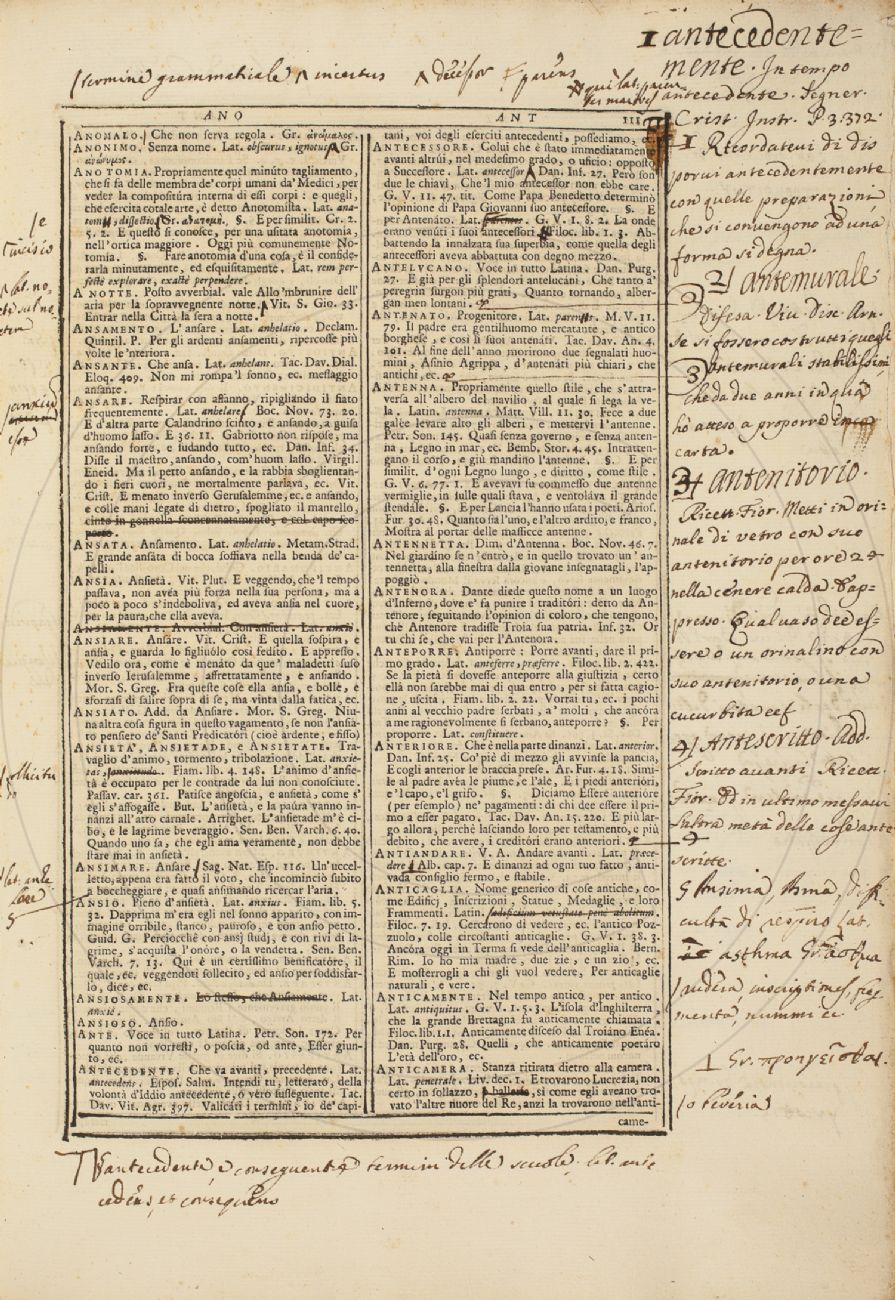 1 antecedente=
mente. In tempo
antecedente. Segner.
Crist. Instr. P. 3.312.
termine grammaticale ʌ incertus
ANO
ANT
III
ANOMALO. Che non serva regola. Gr. ἀνόμαλος.
ANONIMO. Senza nome. Lat. obscurus, ignotus. Gr.
ἀνώνυμος.
ANOTOMIA. Propriamente quel minúto tagliamento,
che si fa delle membra de' corpi umani da' Medici, per
veder la compositúra interna di essi corpi: e quegli,
che esercita cotale arte, è detto Anotomista. Lat. ana-
§. E per similit. Cr. 2.
5. 2. E questo si conosce, per una usitata anotomia,
nell'ortica maggiore. Oggi più comunemente No-
tomia. §. Fare anotomia d'una cosa, è il conside-
rarla minutamente, ed esquisitamente. Lat. rem per-
fectè explorare, exactè perpendere.
A NOTTE. Posto avverbial. vale Allo 'mbrunire dell'
aria per la sopravvegnente notte. Vit. S. Gio. 33.
Entrar nella Città la sera a notte.
ANSAMENTO. L' ansare. Lat. anhelatio. Declam.
Quintil. P. Per gli ardenti ansamenti, ripercosse più
volte le 'nteriora.
ANSANTE. Che ansa. Lat. anhelans. Tac. Dav. Dial.
Eloq. 409. Non mi rompa 'l sonno, ec. messaggio
ansante.
ANSARE. Respirar con affanno, ripigliando il fiato
frequentemente. Lat. anhelare. Boc. Nov. 73. 20.
E d'altra parte Calandrino scinto, e ansando, a guisa
d'huomo lasso. E 36. 11. Gabriotto non rispose, ma
ansando forte, e sudando tutto, ec. Dan. Inf. 34.
Disse il maestro, ansando, com'huom lasso. Virgil.
Eneid. Ma il petto ansando, e la rabbia sboglientan-
do i fieri cuori, ne mortalmente parlava, ec. Vit.
Crist. E menato inverso Gerusalemme, ec. e ansando,
e colle mani legate di dietro, spogliato il mantello,
cinto in gonnella sconconatamento, e col capo sco-
perto.
ANSATA. Ansamento. Lat. anhelatio. Metam. Strad.
E grande ansata di bocca soffiava nella benda de' ca-
pelli.
ANSIA. Ansietà. Vit. Plut. E veggendo, che 'l tempo
passava, non avéa più forza nella sua persona, ma a
poco a poco s'indeboliva, ed aveva ansia nel cuore,
per la paura, che ella aveva.
ANSIAMENTE. Avverbial. Con ansietà. Lat. anxiè.
ANSIARE. Ansare. Vit. Crist. E quella sospira, e
ansia, e guarda lo figliuólo così fedito. E appresso.
Vedilo ora, come è menáto da que' maladetti suso
inverso Ierusalemme, affrettatamente, e ansiando.
Mor. S. Greg. Fra queste cose ella ansia, e bolle, e
sforzasi di salire sopra di se, ma vinta dalla fatica, ec.
ANSIATO. Add. da Ansare. Mor. S. Greg. Niu-
na altra cosa figura in questo vagamento, se non l'ansia-
to pensiero de' Santi Predicatóri (cioè ardente, e fisso)
ANSIETÀ, ANSIETADE, e ANSIETATE. Tra-
vaglio d'animo, tormento, tribolazione. Lat. anxie-
tas, Fiam. lib. 4. 148. L'animo d'ansie-
tà è occupato per le contrade da lui non conosciute.
Passav. car. 361. Patisce angoscia, e ansietà, come s'
egli s'affogasse. But. L'ansietà, e la paúra vanno in-
nanzi all'atto carnale. Arrighet. L'ansietade m'è ci-
bo, e le lagrime beveraggio. Sen. Ben. Varch. 6. 40.
Quando uno sa, che egli ama veramente, non debbe
stare mai in ansietà.
ANSIMARE. Ansare. Sag. Nat. Esp. 116. Un'uccel-
letto, appena era fatto il voto, che incominciò subito
a boccheggiare, e quasi ansimando ricercar l'aria.
ANSIO. Pieno d'ansietà. Lat. anxius. Fiam. lib. 5.
32. Dapprima m'era egli nel sonno apparito, con im-
magine orribile, stanco, pauroso, e con ansio petto.
Guid. G. Perciocchè con ansj studj, e con rivi di la-
grime, s'acquista l'onóre, o la vendetta. Sen. Ben.
Varch. 7. 13. Qui è un certissimo benificatóre, il
quale, ec. veggendoti sollecito, ed ansio per soddisfar-
lo, dice, ec.
ANSIOSAMENTE. Lo stesso, che Ansiamente. Lat.
anxiè.
ANSIOSO. Ansio.
ANTE. Voce in tutto Latina. Petr. Son. 172. Per
quanto non vorresti, o poscia, od ante, Esser giun-
to, ec.
ANTECEDENTE. Che va avanti, precedente. Lat.
antecedens. Espos. Salm. Intendi tu, letterato, della
volontà d'Iddio antecedente, o vero susseguente. Tac.
Dav. Vit. Agr. 397. Valicáti i termini, io de' capi-
tani, voi degli eserciti antecedenti, possediamo, ec.
ANTECESSORE. Colui che è stato immediatamente
avanti altrúi, nel medesimo grado, o uficio: opposto
a Successore. Lat. antecessor. Dan. Inf. 27. Però son
due le chiavi, Che 'l mio antecessor non ebbe care.
G. V. 11. 47. tit. Come Papa Benedetto determinò
l'opinione di Papa Giovanni suo antecessore. §. E
per Antenáto. Lat. G. V. 1. 8. 2. La onde
erano venúti i suoi antecessori. Filoc. lib. 1. 3. Ab-
battendo la innalzata sua superbia, come quella degli
antecessori aveva abbattuta con degno mezzo.
ANTELUCANO. Voce in tutto Latina. Dan. Purg.
27. E già per gli splendori antelucani, Che tanto a'
peregrin surgon più grati, Quanto tornando, alber-
gan men lontani.
ANTENATO. Progenitore. Lat. parens. M. V. 11.
79. Il padre era gentilhuomo mercatante, e antico
borghese, e così li suoi antenáti. Tac. Dav. An. 4.
101. Al fine dell'anno morirono due segnalati huo-
mini, Asinio Agrippa, d'antenáti più chiari, che
antichi, ec.
ANTENNA. Propriamente quello stile, che s'attra-
versa all'albero del navilio, al quale si lega la ve-
la. Latin. antenna. Matt. Vill. 11. 30. Fece a due
galée levare alto gli alberi, e mettervi l'antenne.
Petr. Son. 145. Quasi senza governo, e senza anten-
na, Legno in mar, ec. Bemb. Stor. 4. 45. Intratten-
gano il corso, e giù mandino l'antenne. §. E per
similit. d'ogni Legno lungo, e diritto, come stile.
G. V. 6. 77. 1. E avevavi su commesso due antenne
vermiglie, in sulle quali stava, e ventoláva il grande
stendále. §. E per Lancia l'hanno usata i poeti. Arios.
Fur. 30. 48. Quanto sia l'uno, e l'altro ardito, e franco,
Mostra al portar delle massicce antenne.
ANTENNETTA. Dim. d'Antenna. Boc. Nov. 46. 7.
Nel giardino se n' entrò, e in quello trovato un' an-
tennetta, alla finestra dalla giovane insegnatagli, l'ap-
poggiò.
ANTENORA. Dante diede questo nome a un luogo
d'Inferno, dove e' fa punire i traditóri: detto da An-
tenóre, seguitando l'opinion di coloro, che tengono,
che Antenore tradisse Troia sua patria. Inf. 32. Or
tu chi se, che vai per l'Antenora.
ANTEPORRE. Antiporre: Porre avanti, dare il pri-
mo grado. Lat. anteferre, præferre. Filoc. lib. 2. 422.
Se la pietà si dovesse anteporre alla giustizia, certo
ella non sarebbe mai di qua entro, per si fatta cagio-
ne, uscita. Fiam. lib. 2. 22. Vorrai tu, ec. i pochi
anni al vecchio padre serbati, a' molti, che ancóra
a me ragionevolmente si serbano, anteporre? §. Per
proporre. Lat. constituere.
ANTERIORE. Che è nella parte dinanzi. Lat. anterior.
Dan. Inf. 25. Co' piè di mezzo gli avvinse la pancia,
E cogli anterior le braccia prese. Ar. Fur. 4. 18. Simi-
le al padre avéa le piume, e l'ale, E i piedi anteriori,
e 'l capo, e 'l grifo. §. Diciamo Essere anterióre
(per esempio) ne' pagamenti: di chi dee essere il pri-
mo a esser pagato. Tac. Dav. An. 15. 220. E più lar-
go allora, perchè lasciando loro per testamento, e più
debito, che avere, i creditóri erano anteriori.
ANTIANDARE. V. A. Andare avanti. Lat. præce-
dere. Alb. cap. 7. E dinanzi ad ogni tuo fatto, anti-
vada consiglio fermo, e stabile.
ANTICAGLIA. Nome generico di cose antiche, co-
me Edificj, Inscrizioni, Statue, Medaglie, e loro
Frammenti. Latin. ædificium vetustate penè abolitum.
Filoc. 7. 19. Cercarono di vedere, ec. l'antico Poz-
zuolo, colle circostanti anticaglie. G. V. 1. 38. 3.
Ancóra oggi in Terma si vede dell'anticaglia. Bern.
Rim. Io ho mia madre, due zie, e un zio, ec.
E mosterrogli a chi gli vuol vedere, Per anticaglie
naturali, e vere.
ANTICAMENTE. Nel tempo antico, per antico.
Lat. antiquitus. G. V. 1. 5. 3. L'isola d'Inghilterra,
che la grande Brettagna fu anticamente chiamata.
Filoc. lib. 1. 1. Anticamente disceso dal Troiáno Enéa.
Dan. Purg. 28. Quelli, che anticamente poetáro
L'età dell'oro, ec.
ANTICAMERA. Stanza ritirata dietro alla camera.
Lat. penetrale. Liv. dec. 1. E trovarono Lucrezia, non
certo in sollazzo, o ballare, si come egli aveano tro-
vato l'altre nuore del Re, anzi la trovarono nell'anti-
came-
1 Ricordatevi di dis
porvi antecedentemente
con quelle preparazioni
che si convengono ad una
forma si degna.
2 antemurale.
Difesa. Viv. Disc. Arn.
Se si fossero costrutti quegli
antemurali stabilissimi
che da due anni in quà
hò atteso a proporre
carta.
3 antenitorio.
Ricett. Fior. Metti in ori-
nale di vetro con suo
antenitorio per ore 24
nella cenere calda. E ap-
presso. Qual vaso dee es-
sere o un orinalino con
suo antenitorio, o una
cucurbita ec
4 Antescritto. Add.
Scritto avanti Ricett.
Fior. Ed in ultimo messavi
l'altra metà delle cose ante
scritte.
§ Ansima, Asma, diffi
cultà di respiro lat.
asthma Gr. ἆσθμα
rudera, inscriptiones, frag
menta, nummi ec
antecedente, e conseguente termini delle scuole. lat. ante
cedens, et consequens